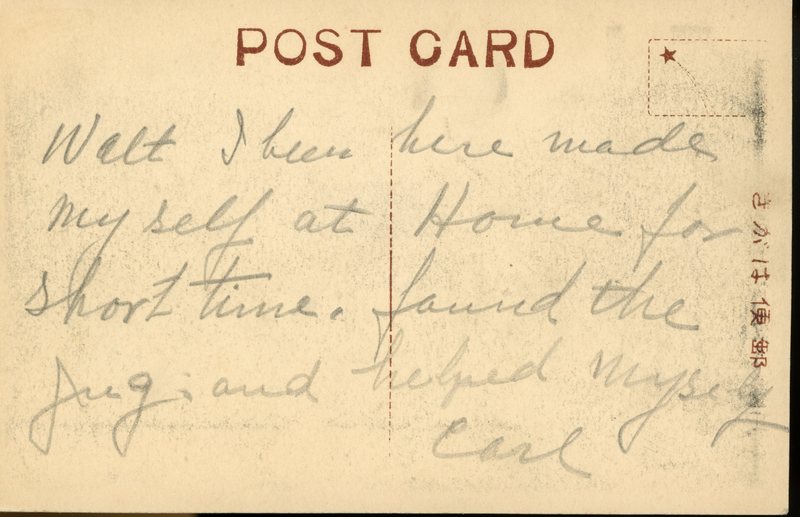 POST CARD
Walt I been here made
myself at Home for
short time. found the
jug. and helped myself
Carl
きがは便郵